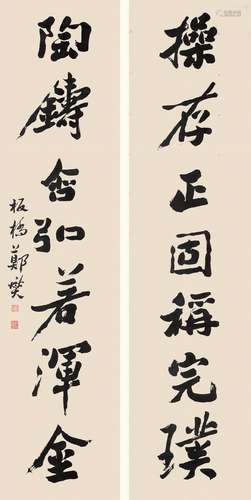 操存正固稱完璞
陶鑄含弘若渾金
板橋鄭燮